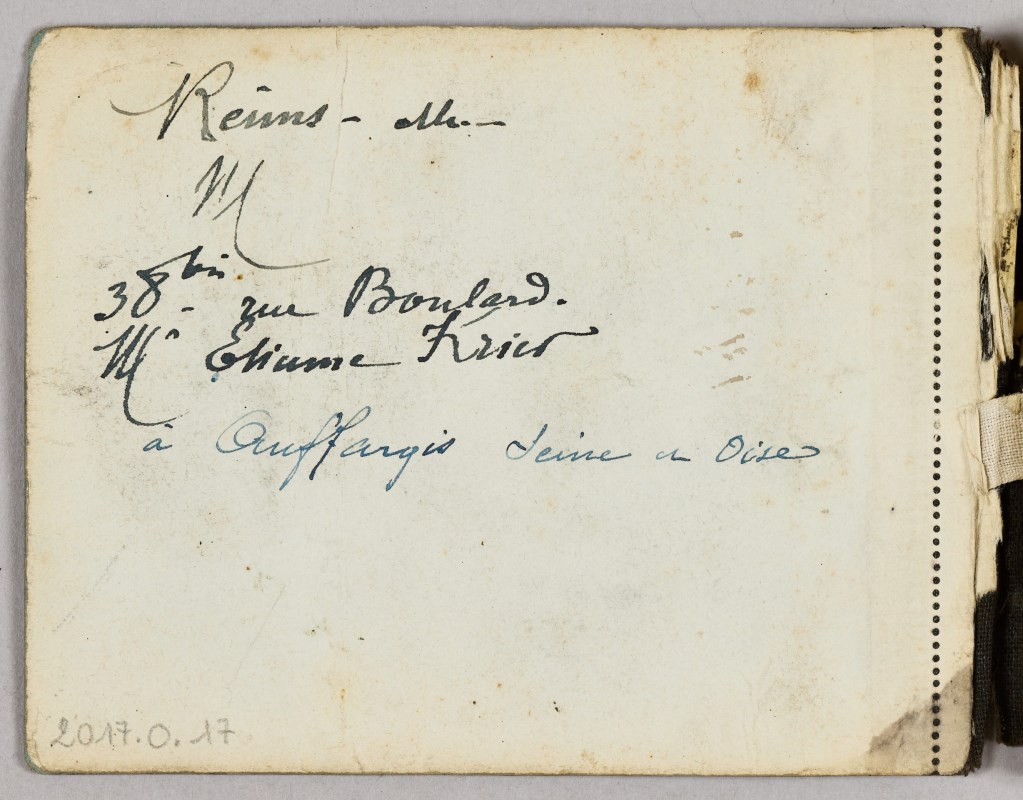 Reims -
M
38 bis - rue Boulard.
Mr Etienne
à Auffargis Seine et Oise
2017.0.17